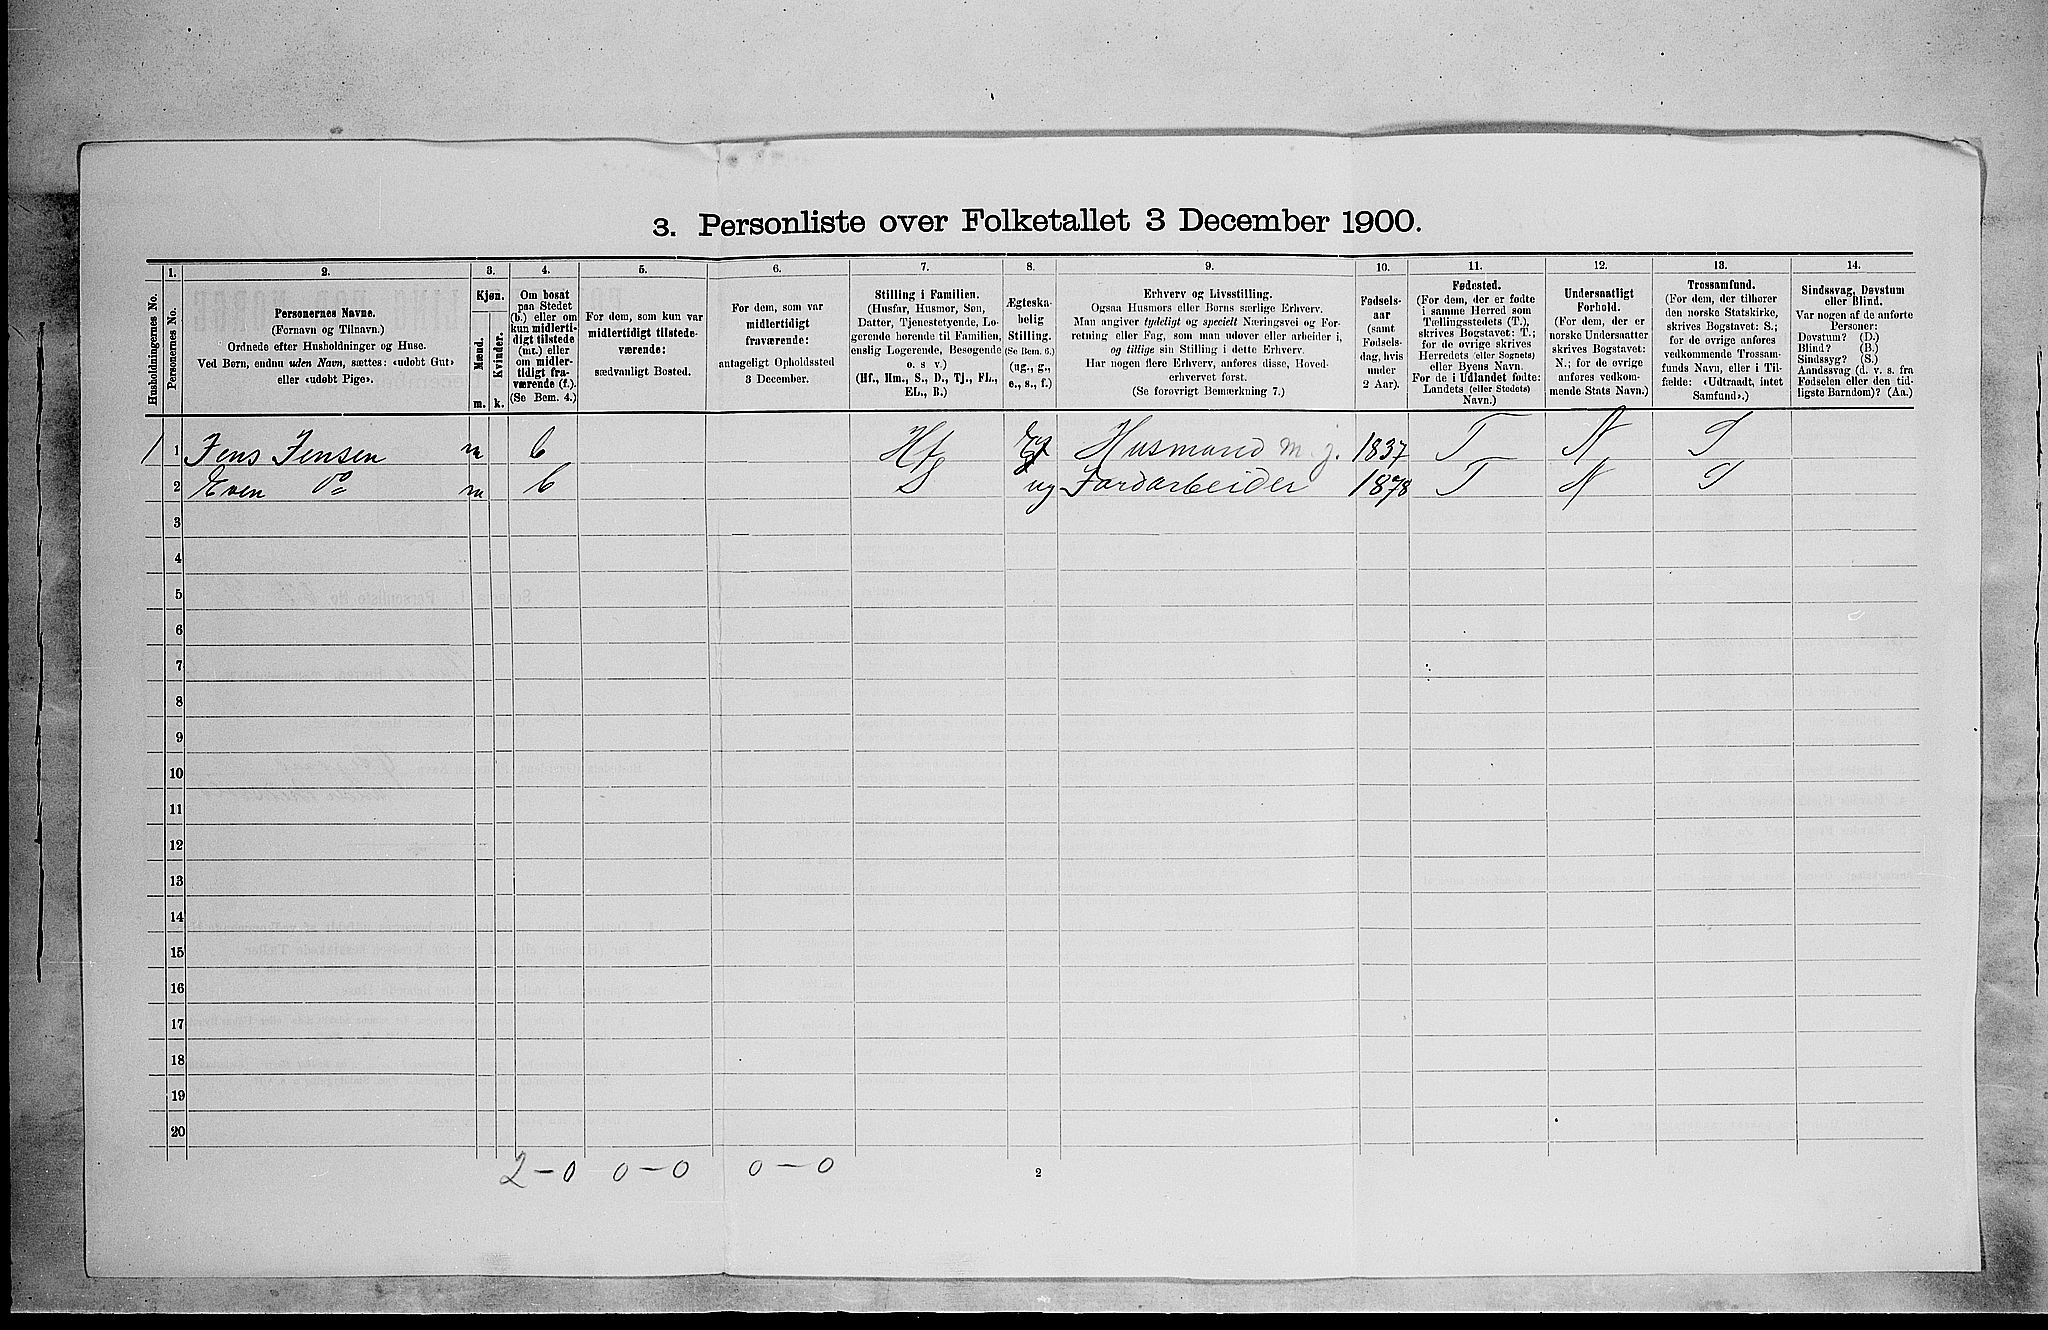 3. Personliste over Folketallet 3 December 1900.
Husholdningernes No.
1.
Personernes No.
2.
Personernes Navne.
(Fornavn og Tilnavn.)
Ordnede efter Husholdninger og Huse.
Ved Børn, endnu uden Navn, sættes: «udøbt Gut»
eller «udøbt Pige».
3.
Kjøn.
Mænd.
Kvinder.
m. k.
4.
Om bosat
paa Stedet
(b.) eller om
kun midlerti-
digt tilstede
(mt.) eller
om midler-
tidigt fra-
værende (f.).
(Se Bem. 4.)
5.
For dem, som kun var
midlertidigt tilstede-
værende:
sædvanligt Bosted.
6.
For dem, som var
midlertidigt
fraværende:
antageligt Opholdssted
3 December.
7.
Stilling i Familien.
(Husfar, Husmor, Søn,
Datter, Tjenestetyende, Lo-
gerende hørende til Familien,
enslig Logerende, Besøgende
o. s v.)
(Hf., Hm., S., D., Tj., FL.,
EL., B.)
8.
Ægteska-
belig
Stilling.
(Se Bem. 6.)
(ug., g.,
e., s., f.)
9.
Erhverv og Livsstilling.
Ogsaa Husmors eller Børns særlige Erhverv.
Man angiver tydeligt og specielt Næringsvei og For-
retning eller Fag, som man udøver eller arbeider i,
og tillige sin Stilling i dette Erhverv.
Har nogen flere Erhverv, anføres disse, Hoved-
erhvervet først.
(Se forøvrigt Bemærkning 7.)
10.
Fødsels-
aar
(samt
Fødsels-
dag, hvis
under
2 Aar).
11.
Fødested.
(For dem, der er fødte
i samme Herred som
Tællingsstedets (T.),
skrives Bogstavet: T.;
for de øvrige skrives
Herredets (eller Sognets)
eller Byens Navn.
For de i Udlandet fødte:
Landets (eller Stedets)
Navn.)
12.
Undersaatligt
Forhold.
(For dem, der er
norske Undersaatter
skrives Bogstavet:
N.; for de øvrige
anføres vedkom-
mende Stats Navn.)
13.
Trossamfund.
(For dem, der tilhører
den norske Statskirke,
skrives Bogstavet: S.;
for de øvrige anføres
vedkommende Trossam-
funds Navn, eller i Til-
fælde: «Udtraadt, intet
Samfund».)
14.
Sindssvag, Døvstum
eller Blind.
Var nogen af de anførte
Personer:
Døvstum? (D.)
Blind? (B.)
Sindssyg? (S.)
Aandssvag (d. v. s. fra
Fødselen eller den tid-
ligste Barndom)? (Aa.)
1 1 Jens Jensen m b Hf Husmand m. j. 1837 T N S
2 Even do m b S ug Jordarbeider 1878 T N S
3
4
5
6
7
8
9
10
11
12
13
14
15
16
17
18
19
20
2 – 0 0 – 0 0 – 0
2